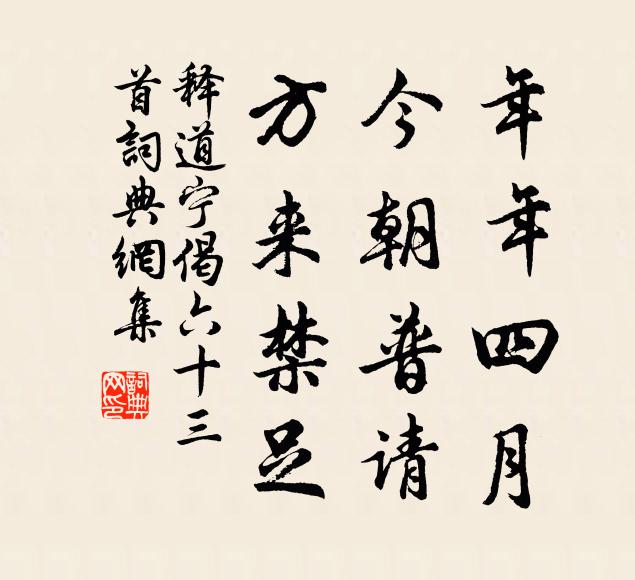 年年四月
今朝普请
方来禁足
释道宁偈六十三
首詞典網集
詞典
网印